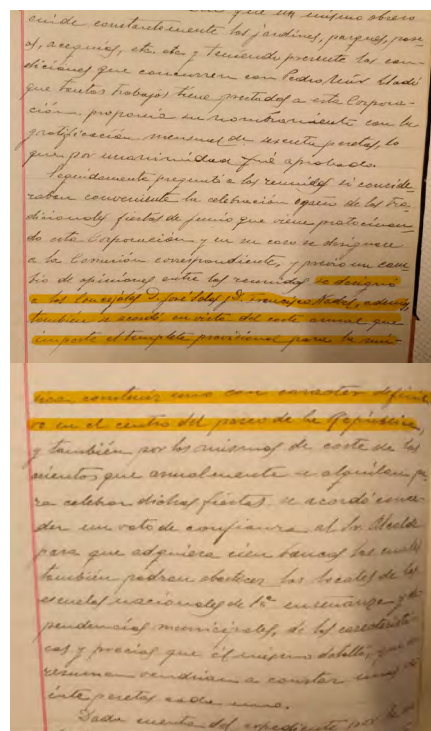 que un mismo obrero
cuide constantemente los jardines, parques, pase-
os, acequias, etc. etc. y teniendo presente las con-
diciones que concurren con Pedro Mir Lladó
que tantos trabajos tiene prestados a esta Corpora-
ción, proponia su nombramiento con la
gratificación mensual de sesenta pesetas, lo
que por unanimidad fué aprobado.
Seguidamente preguntó a los reunidos si conside-
raban conveniente la celebración de las tra-
dicionales fiestas de junio que viene patrocinan-
do esta Corporación y en su caso se designase
a la Comisión correspondiente, y previo un cam-
bio de opiniones entre los reunidos se designó
a los Concejales D. José Solés y D. Nadal, además,
también se acordó en vista del coste anual que
importe el templete provisional para la mú-
sica, construir uno con caracter definiti
vo en el centro del paseo de la República,
y también por los mismos de coste de los
asientos que anualmente se alquilan pa
ra celebrar dichas fiestas, se acordó conce-
der un voto de confianza al Sr. Alcalde
para que adquiera cien bancos los cuales
también podran abastecer los locales de las
escuelas nacionales de 1ª enseñanza y de
pendencias municipales, de las caracteristi-
cas y precios que él mismo detalló, que en
resumen vendrian a constar unas
inte pesetas cada uno.
Dada cuenta del expediente por